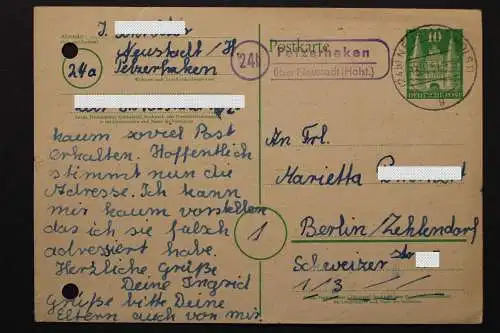 Absender:
J.
Neustadt/H.
24a
Pelzerhaken
Postkarte
24b
Pelzerhaken
über Neustadt (Holst.)
10
DEUTSCHE POST
kaum soviel Post
erhalten. Hoffentlich
stimmt nun die
Adresse. Ich kann
mir kaum vorstellen
das ich sie falsch
adressiert habe.
Herzliche Grüße
Deine Ingrid
Grüße bitte Deine
Eltern auch von mir.
An Frl.
Marietta
1
Berlin/Zehlendorf
Schweizer str
1/3